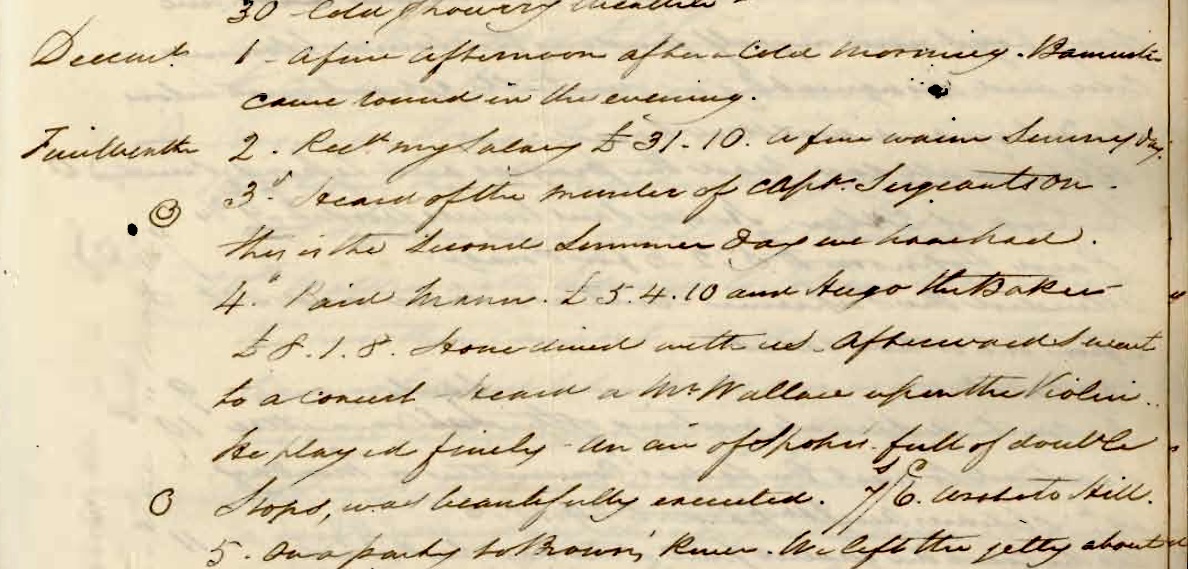 30 Cold showery weather -
Decemr. 1 - A fine afternoon after a cold morning.
came round in the evening.
2. Recd. my Salary £ 31.10. a fine warm Sunny day.
3d. Heard of the murder of Capt. Sergeantson.
this is the second Summer day we have had.
4." Paid Mann. £ 5.4.10 and Hugo the Baker
£ 8.1.8. Hone dined with us. Afterwards went
to a concert heard a Mr. Wallace upon the Violin.
He played finely - an air of Spohr. full of double
Stops, was beautifully executed. wrote to Hill.
5. On a party to Brown's River. We left the jetty about